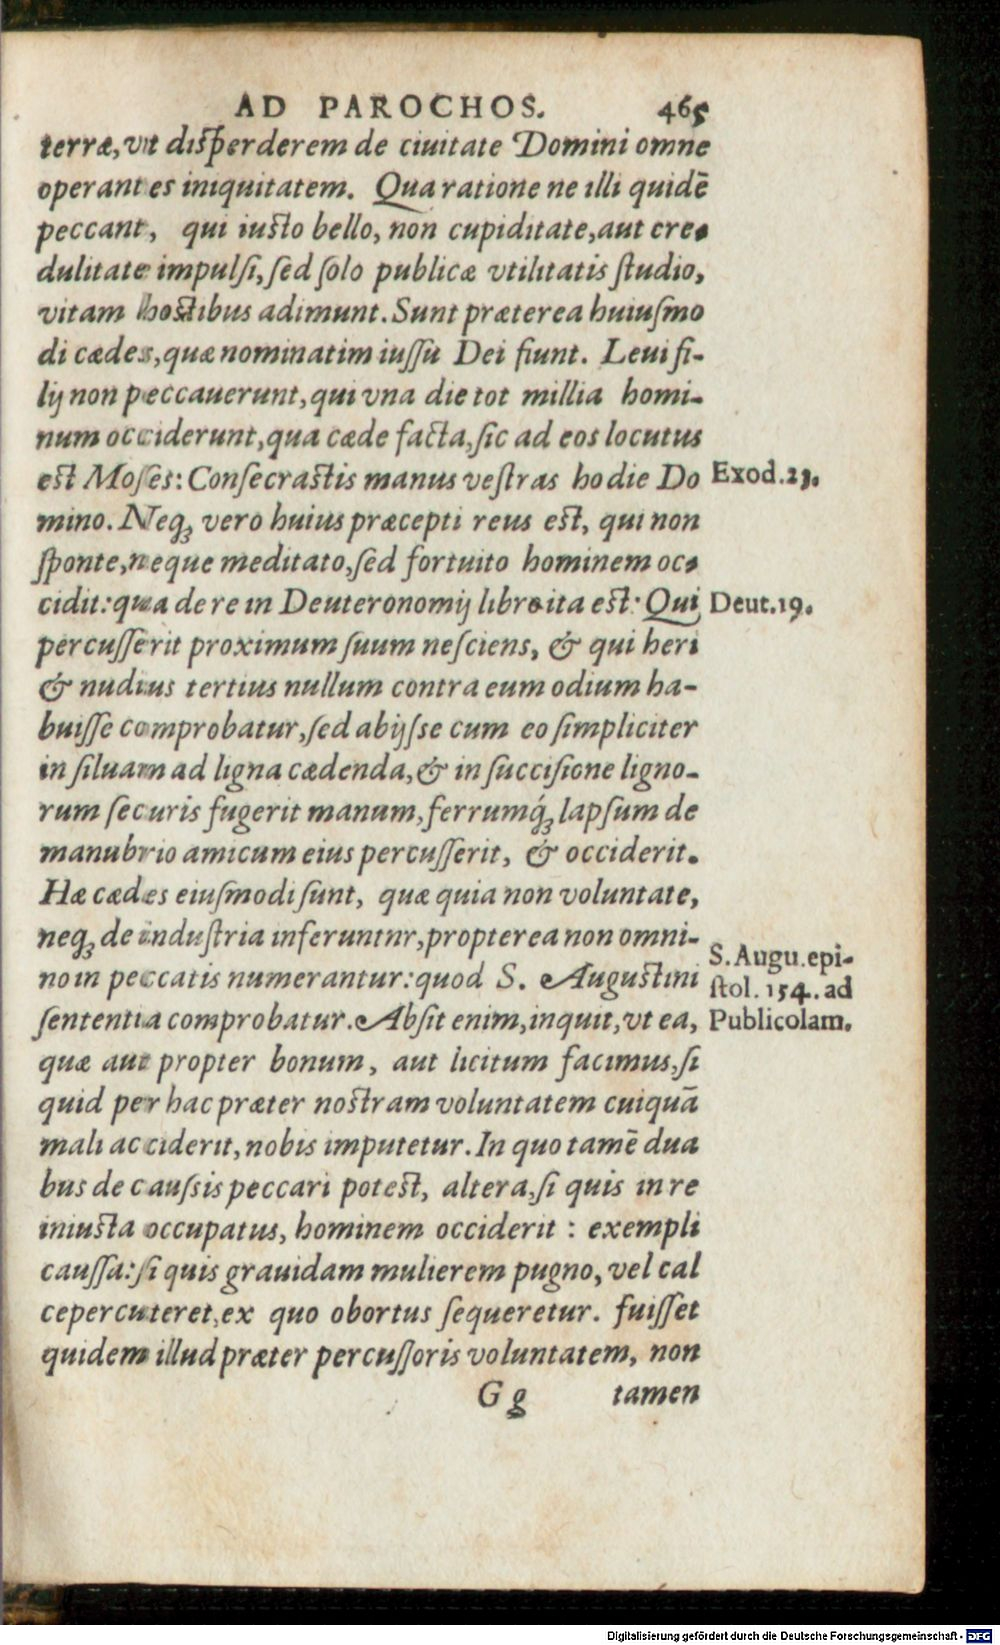 AD PAROCHOS. 465
terræ, vt disperderem de ciuitate Domini omne
operantes iniquitatem. Qua ratione ne illi quidē
peccant, qui iusto bello, non cupiditate, aut cre-
dulitate impulsi, sed solo publicæ vtilitatis studio,
vitam hostibus adimunt. Sunt præterea huiusmo
di cædes, quæ nominatim iussu Dei fiunt. Leui fi-
lij non peccauerunt, qui vna die tot millia homi-
num occiderunt, qua cæde facta, sic ad eos locutus
est Moses: Consecrastis manus vestras hodie Do
Exod. 23.
mino. Neq; vero huius præcepti reus est, qui non
sponte, neque meditato, sed fortuito hominem oc-
cidit: qua de re in Deuteronomij libro ita est: Qui
Deut. 19.
percusserit proximum suum nesciens, & qui heri
& nudius tertius nullum contra eum odium ha-
buisse comprobatur, sed abijsse cum eo simpliciter
in siluam ad ligna cædenda, & in succisione ligno-
rum securis fugerit manum, ferrumq́; lapsum de
manubrio amicum eius percusserit, & occiderit.
Hæ cædes eiusmodi sunt, quæ quia non voluntate,
neq; de industria inferuntnr, propterea non omni-
no in peccatis numerantur: quod S. Augustini
S. Augu. epi-
stol. 154. ad
Publicolam.
sententia comprobatur. Absit enim, inquit, vt ea,
quæ aut propter bonum, aut licitum facimus, si
quid per hac præter nostram voluntatem cuiquā
mali acciderit, nobis imputetur. In quo tamē dua
bus de caussis peccari potest, altera, si quis in re
iniusta occupatus, hominem occiderit : exempli
caussa: si quis grauidam mulierem pugno, vel cal
ce percuteret, ex quo obortus sequeretur. fuisset
quidem illud præter percussoris voluntatem, non
Gg tamen
Digitalisierung gefördert durch die Deutsche Forschungsgemeinschaft - DFG